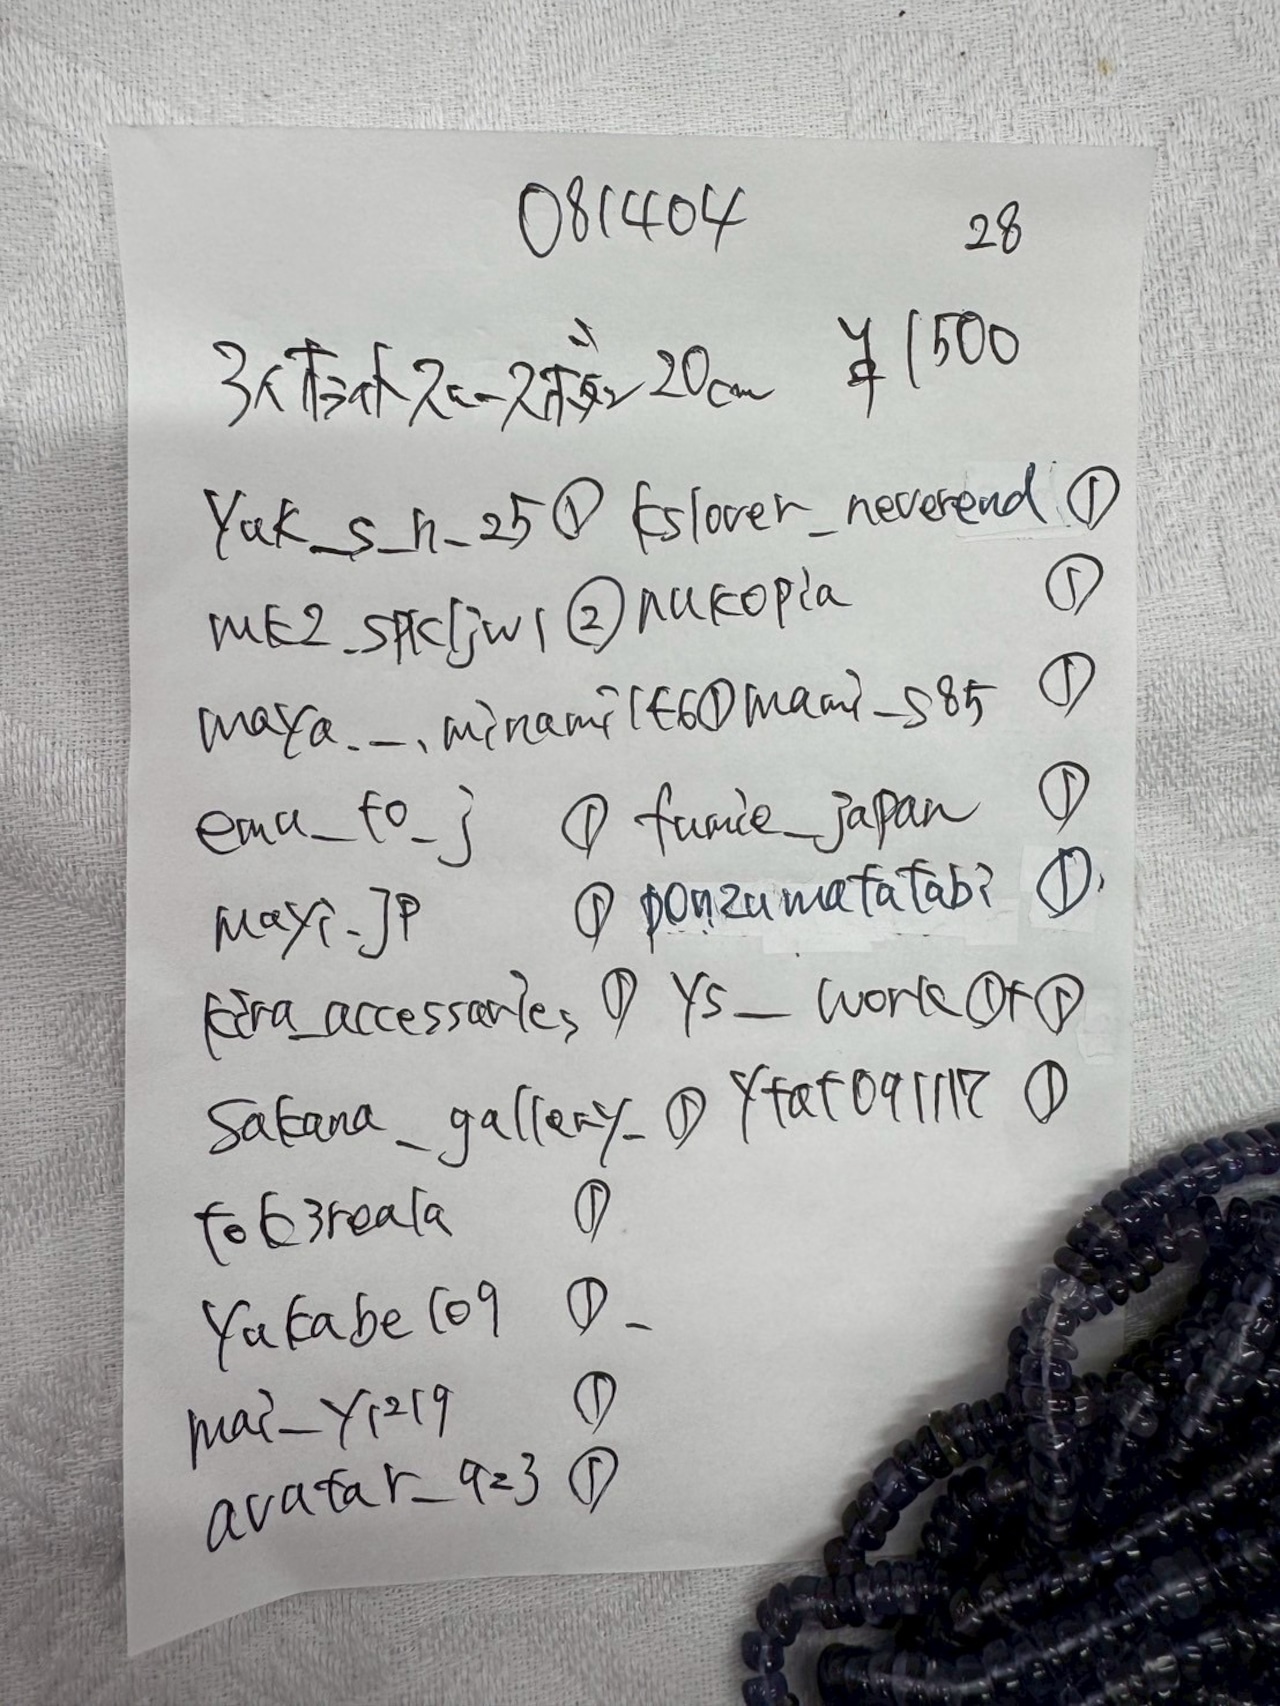 081404 28
¥1500
20cm
Yuk_s_n_25 ① kslover_neverend ①
② nukopia ①
maya._.minami1660 ① mami_s85 ①
emu_to_j ① fumie_japan ①
mayi.jp ① ponzumatatabi ①
kira_accessories ① ys_work ①+①
sakana_gallery_ ① ytat091117 ①
tob3reala ①
yukabe109 ① -
mai_y1219 ①
avatar_923 ①